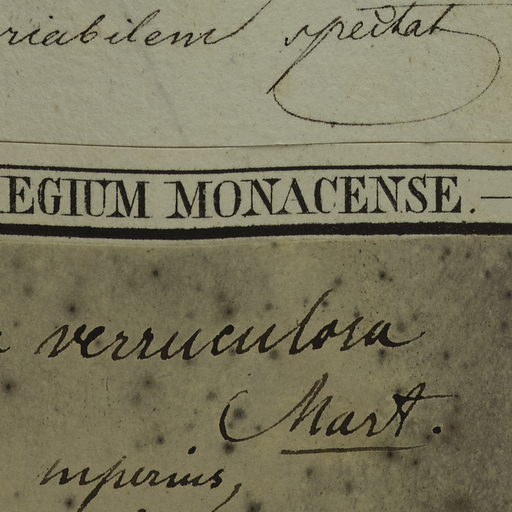 riabilem spectat
EGIUM MONACENSE.—
verruculosa
Mart.